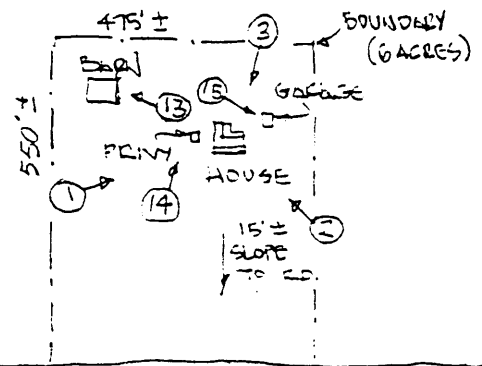 475' ±
3
BOUNDARY
(6 ACRES)
BARN
15
GARAGE
13
550' ±
PRIVY
HOUSE
1
14
2
15' ±
SLOPE
TO RD.